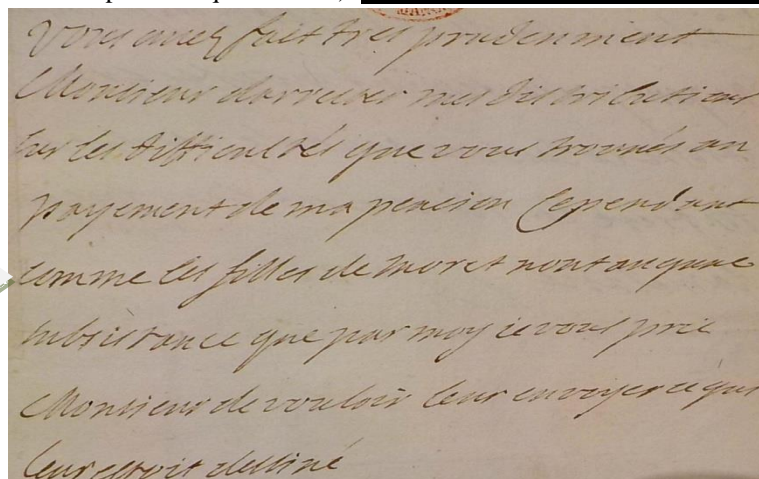 Vous avez fait tres prudenment
Monsieur darrester mes distributions
sur les difficultés que vous trouués au
payement de ma pencion Cependant
comme les filles de moret nont auqune
subsistance que par moy ie vous prie
Monsieur de vouloir leur envoyer ce qui
leur estoit destiné